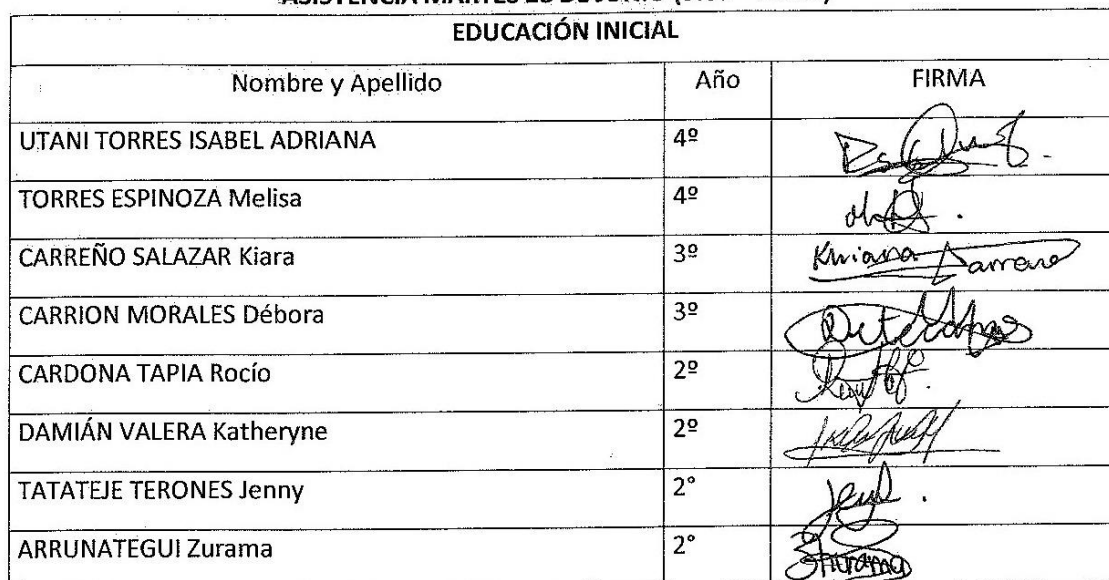 EDUCACIÓN INICIAL
Nombre y Apellido Año FIRMA
UTANI TORRES ISABEL ADRIANA 4º
TORRES ESPINOZA Melisa 4º
CARREÑO SALAZAR Kiara 3º
CARRION MORALES Débora 3º
CARDONA TAPIA Rocío 2º
DAMIÁN VALERA Katheryne 2º
TATATEJE TERONES Jenny 2°
ARRUNATEGUI Zurama 2° Zhurama